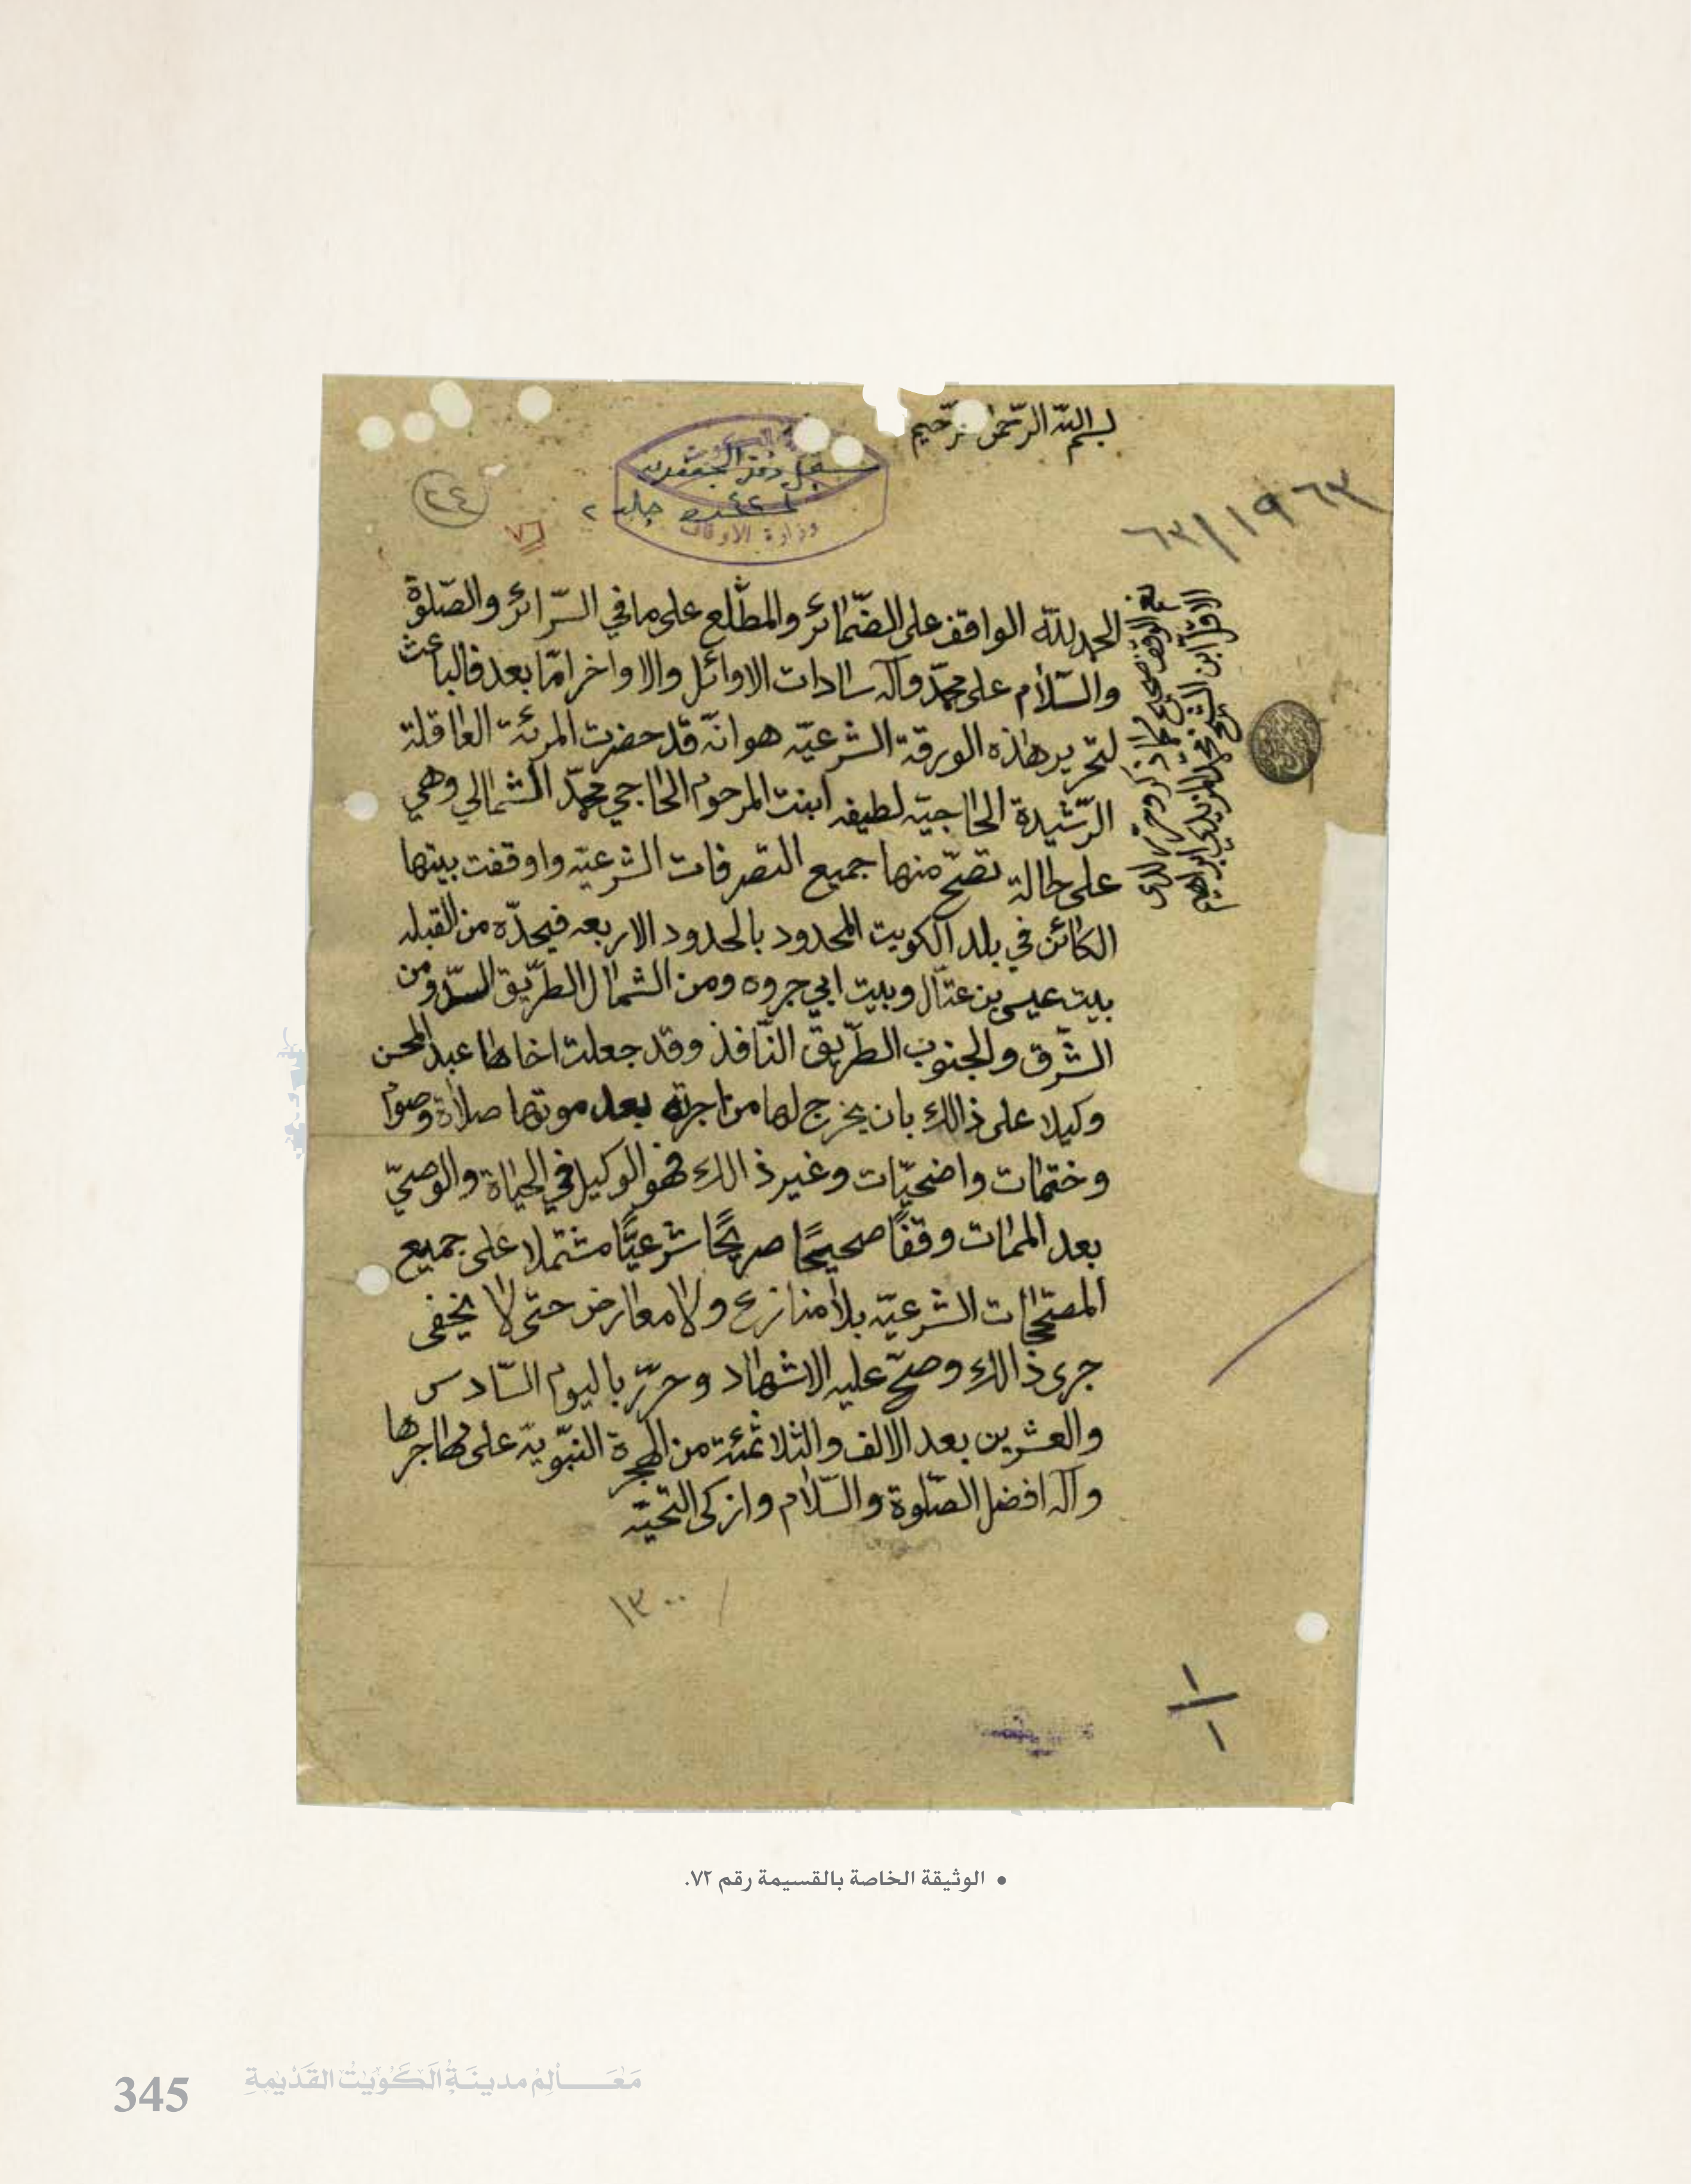 بسم الله الرحمن الرحيم
٦٣/١٩٦٣
سجل دفتر الجعفريه
جلد ٢
وزارة الاوقاف
٢٤
٧٦
الحمد لله الواقف على الضمائر والمطّلع على ما في السّرائر والصّلوة
والسّلام على محمّد وآله سادات الاوائل والاواخر امّا بعد فالباعث
لتحرير هذه الورقة الشرعيّه هو انّه قد حضرت المرئة العاقلة
الرّشيدة الحاجيّه لطيفه ابنت المرحوم الحاجي محمّد الشمالي وهي
على حالة تصحّ منها جميع التصرفات الشرعيّه واوقفت بيتها
الكائن في بلد الكويت المحدود بالحدود الاربعه فيحدّه من القبله
بيت عيسى بن عتّال وبيت ابي جروه ومن الشمال الطّريق السدّ ومن
الشّرق والجنوب الطّريق النّافذ وقد جعلت اخاها عبد المحسن
وكيلا على ذالك بان يخرج لها من اجرته بعد موتها صلاة وصوم
وختمات واضحيّات وغير ذالك فهو الوكيل في الحياة والوصيّ
بعد الممات وقفًا صحيحًا صريحًا شرعيًّا مشتملا على جميع
المصتحجات الشرعيّه بلا منازع ولا معارض حتى لا يخفى
جرى ذالك وصحّ عليه الاشهاد وحرّر باليوم السّادس
والعشرين بعد الالف والثلاثمئة من الهجرة النبّويّة على مهاجرها
وآله افضل الصّلوة والسّلام وازكى التحيّه
١٣٠٠
١
١
• الوثيقة الخاصة بالقسيمة رقم ٧٢.
مَعَالِمُ مدينَةِ الكُوَيْتُ القَدْيمَةِ
345